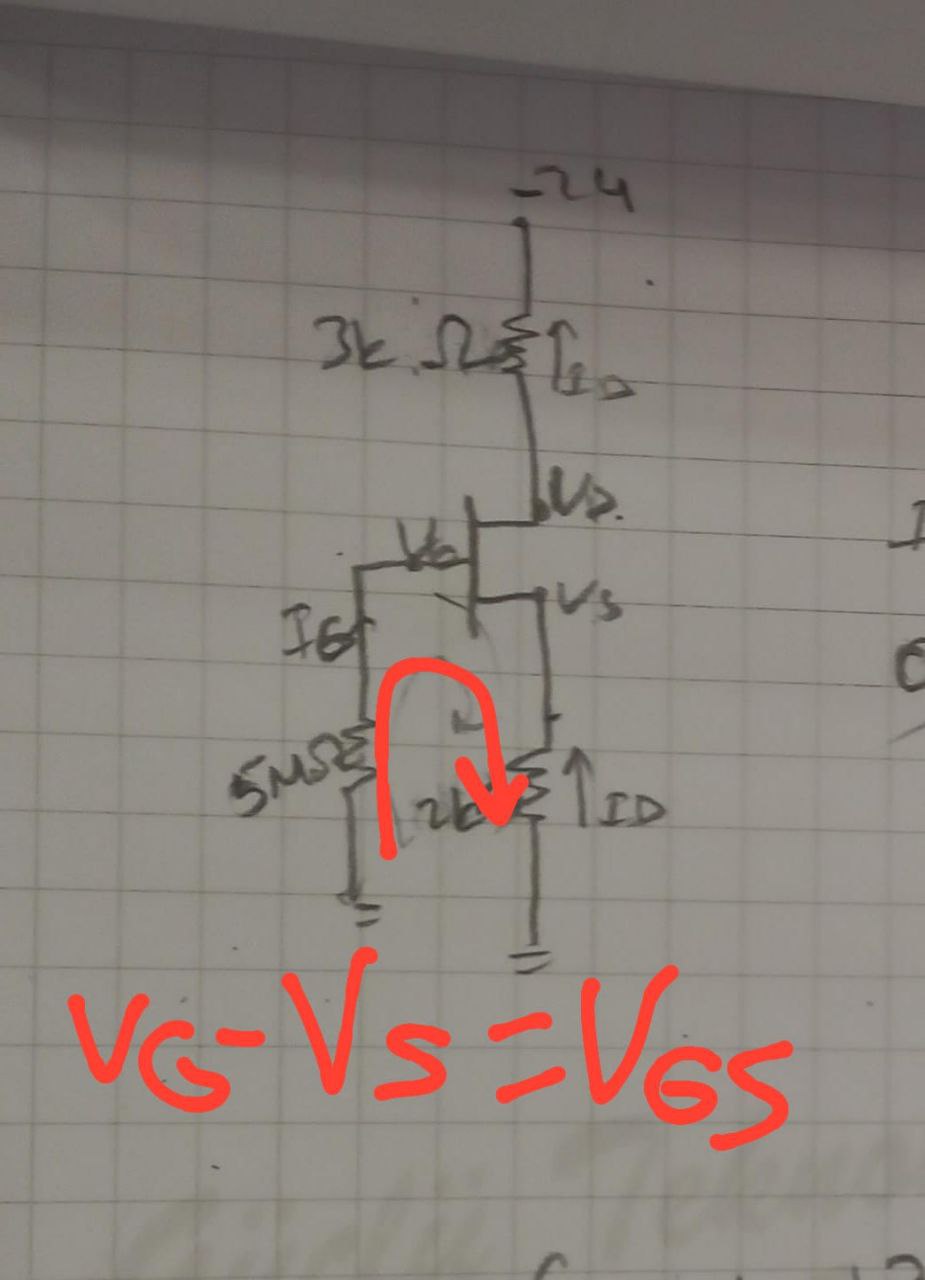 -24
3k Ω
ID
VD.
VG
VS
IG
5MΩ
2k
ID
VG-VS=VGS